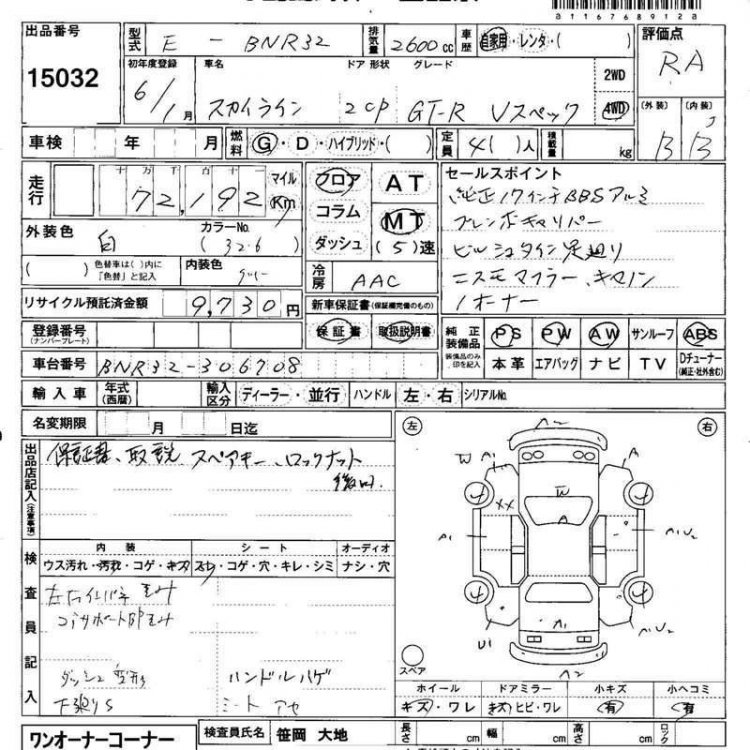 a11676891 2a
出品番号 型式 E - BNR32 排気量 2600cc 車歴 自家用・レンタ・( ) 評価点
15032 RA
初年度登録 車名 ドア 形状 グレード 2WD
6/1月 スカイライン 2 CP GT-R Vスペック 4WD
(外装) (内装)
B B
車検 年 月 燃料 G・D・ハイブリッド・( ) 定員 4( )人 積載量 kg
走行 十万千百十 72,192 マイル Km
フロア AT
コラム MT
ダッシュ (5)速
セールスポイント
純正17インチBBSアルミ
ブレンボキャリパー
ビルシュタイン足廻り
ニスモマフラー、キャノン
1オーナー
外装色 白 カラーNo. (326)
( ) 色替車は( )内に「色替」と記入 内装色 グレー
冷房 AAC
リサイクル預託済金額 9,730円
新車保証書(保証継続完備のもの)
保証書 取扱説明書
登録番号(ナンバープレート)
純正装備品 PS PW AW サンルーフ ABS
装備品のみ、印を記入 本革 エアバッグ ナビ TV Dチューナー(純正・社外含む)
車台番号 BNR32-306708
輸入車 年式(西暦) 輸入区分 ディーラー・並行 ハンドル 左・右 シリアルNo.
名変期限 月 日迄
出品店記入(注意事項)
保証書、取説 スペアキー、ロックナット
後日
検査員記入
内装 シート オーディオ
ウス汚れ・汚れ・コゲ・キズ スレ・コゲ・穴・キレ・シミ ナシ・穴
コアサポートUP歪み
ダッシュ変形 ハンドルハゲ
下廻りS シートアセ
左 右
A2
W A
XX W
A
A1 A1U2
A1
U1 A1U2
A2
スペア
ホイール ドアミラー 小キズ 小ヘコミ
キズ・ワレ キズ・ヒビ・ワレ 有 有
ワンオーナーコーナー 検査員氏名 笹岡 大地 長さ cm 幅 cm 高さ cm ロック